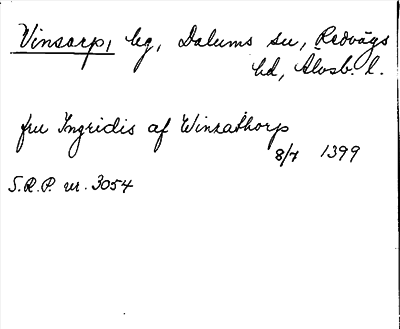 Vinsarp, bg, Dalums sn, Redvägs
hd, Älvsb. l.
fru Ingridis af Winzathorp
8/7 1399
S.R.P. nr. 3054